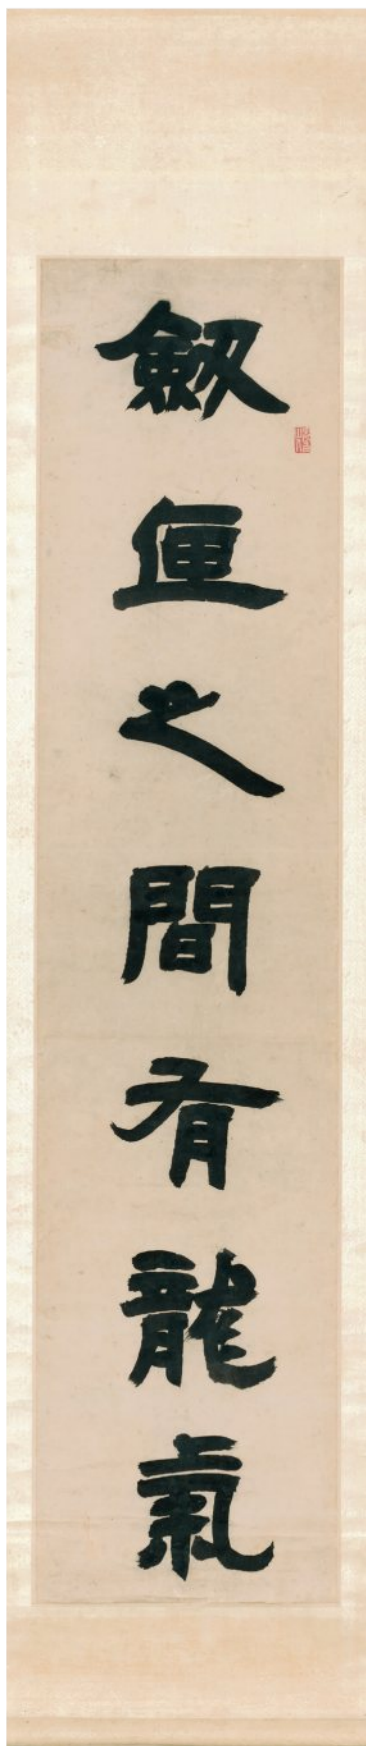 劒匣之間有龍氣